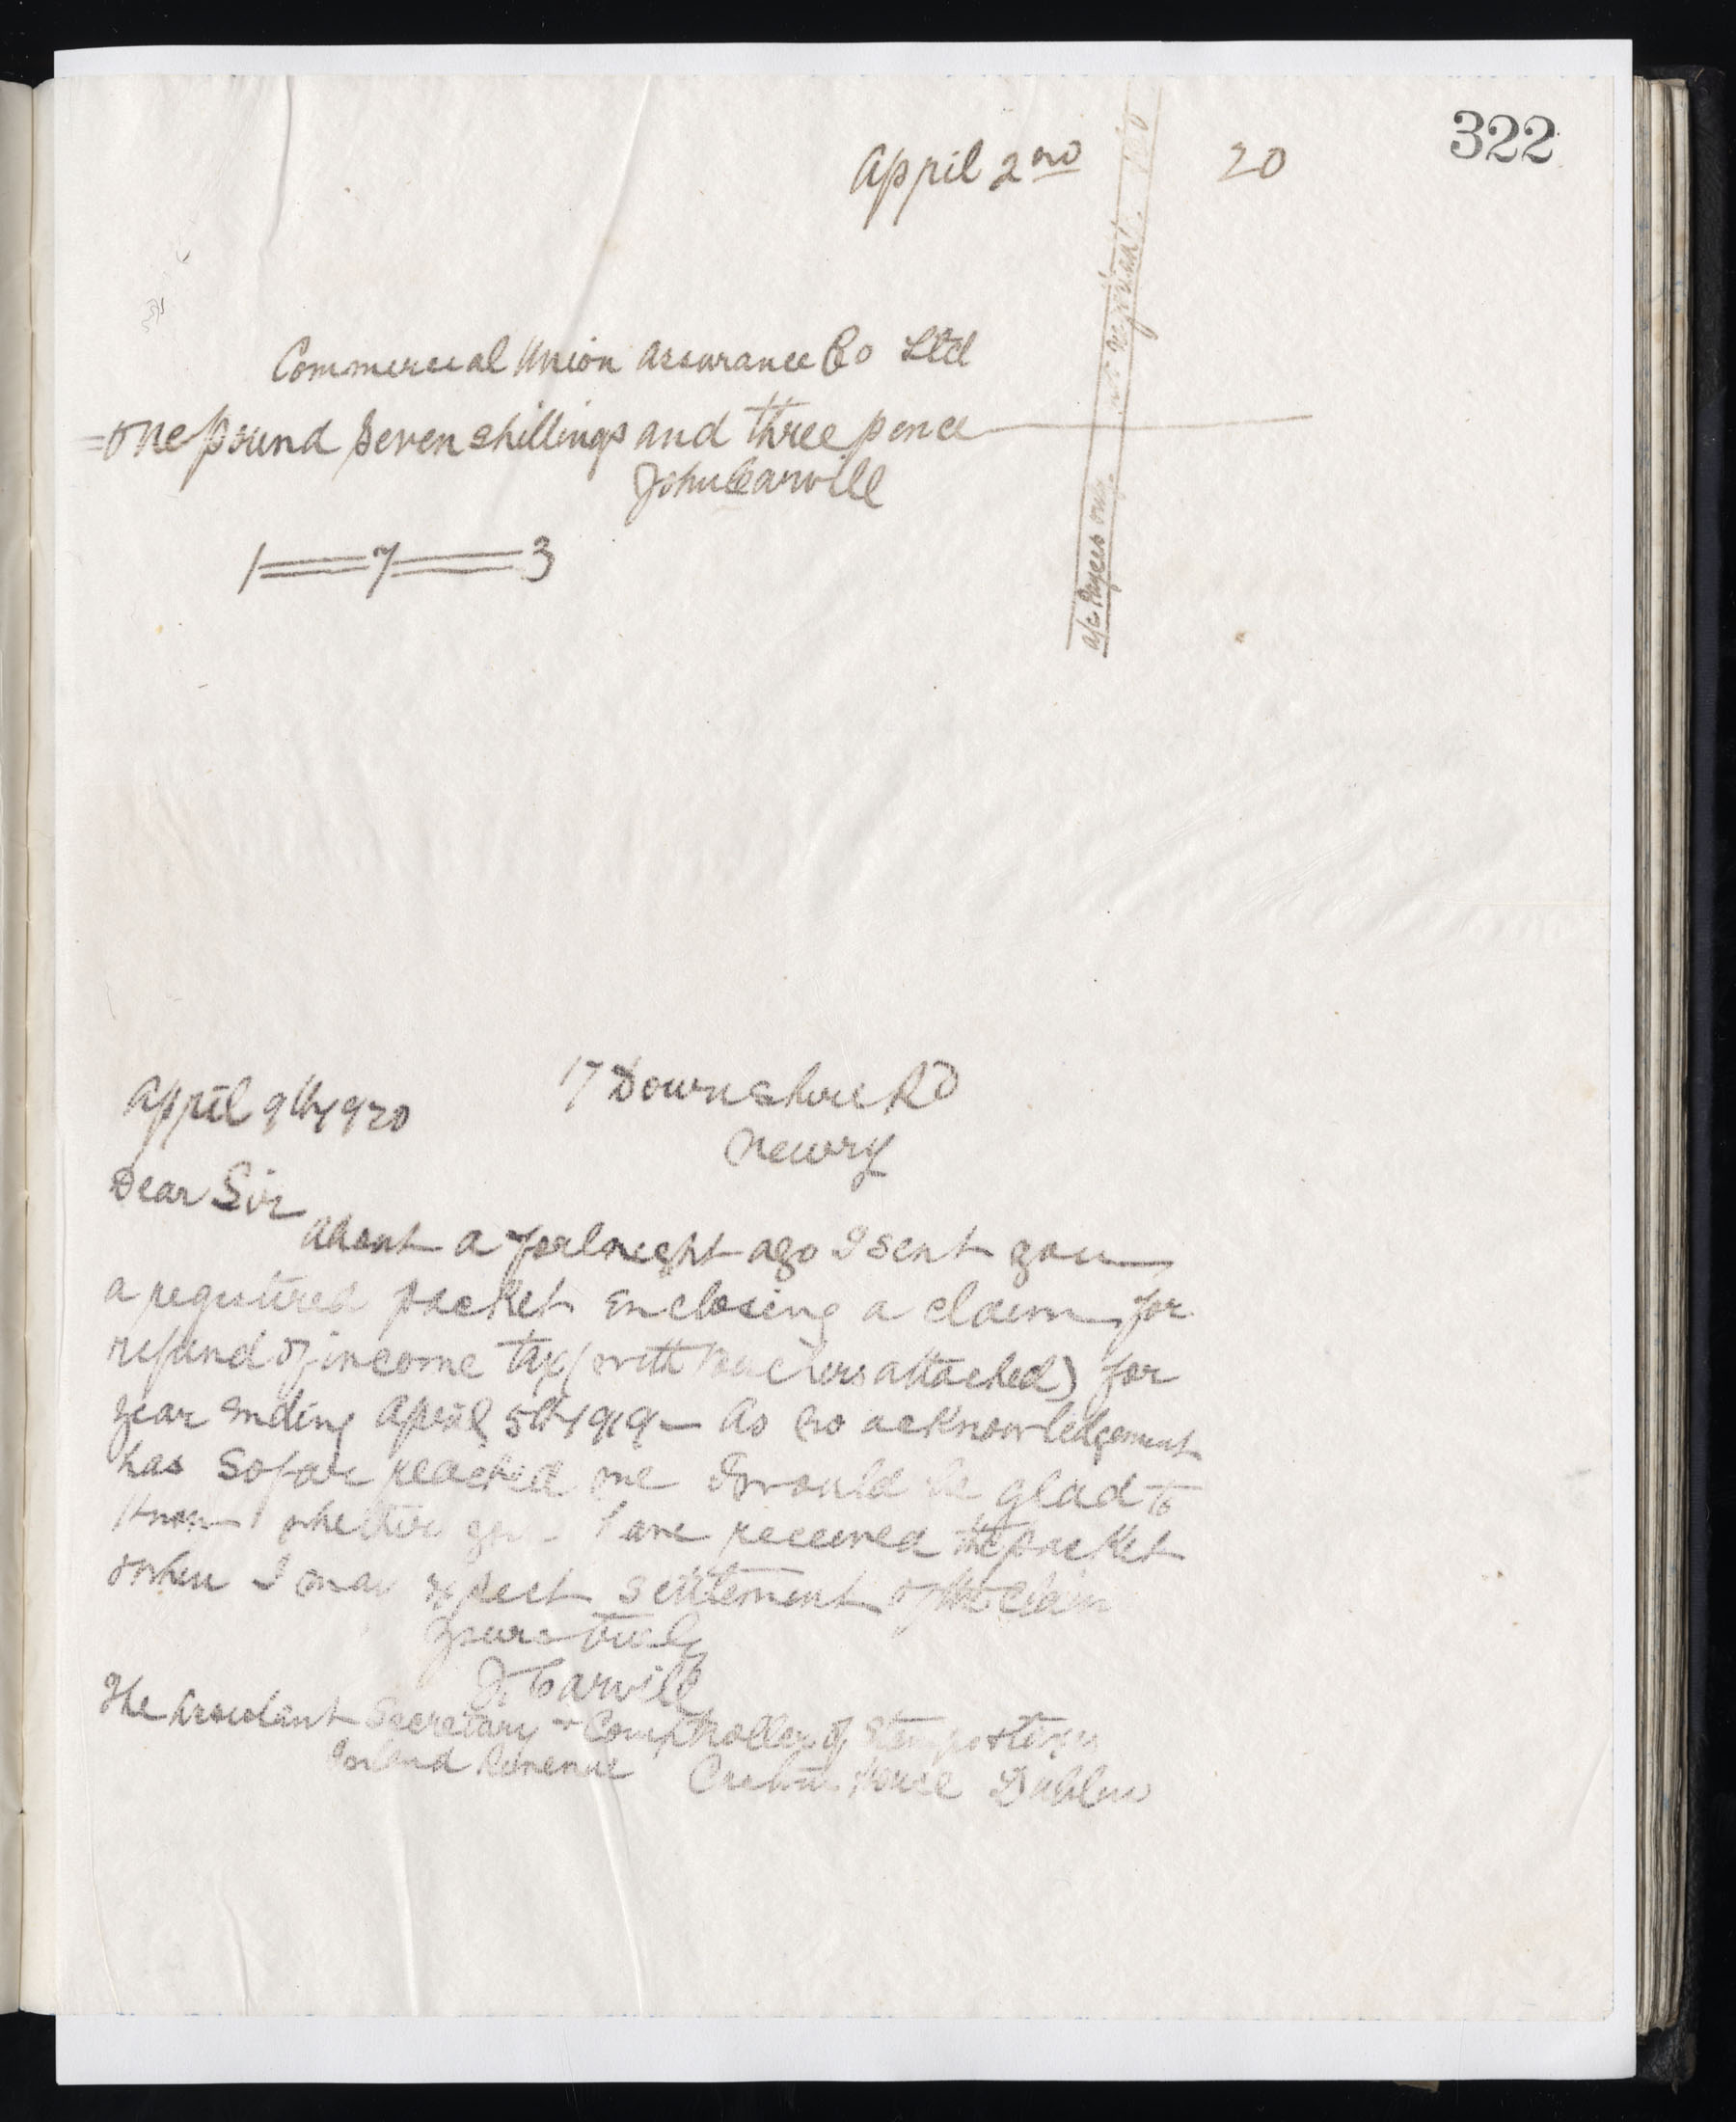 322
April 2nd 20
Commercial Union Assurance Co Ltd
one pound seven shillings and three pence
John Carvill
1 = 7 = 3
a/c Payees only not negotiable
17 Downshire Rd
April 9th 1920
Newry
Dear Sir
About a fortnight ago I sent you
a registered packet enclosing a claim for
refund of income tax (with vouchers attached) for
year ending April 5th 1919 – As no acknowledgement
has so far reached me I would be glad to
know whether you have received the packet
& when I may expect settlement of the claim
Yours truly
J. Carvill
The Assistant Secretary & Comptroller of Stamps & taxes
Inland Revenue Custom House Dublin